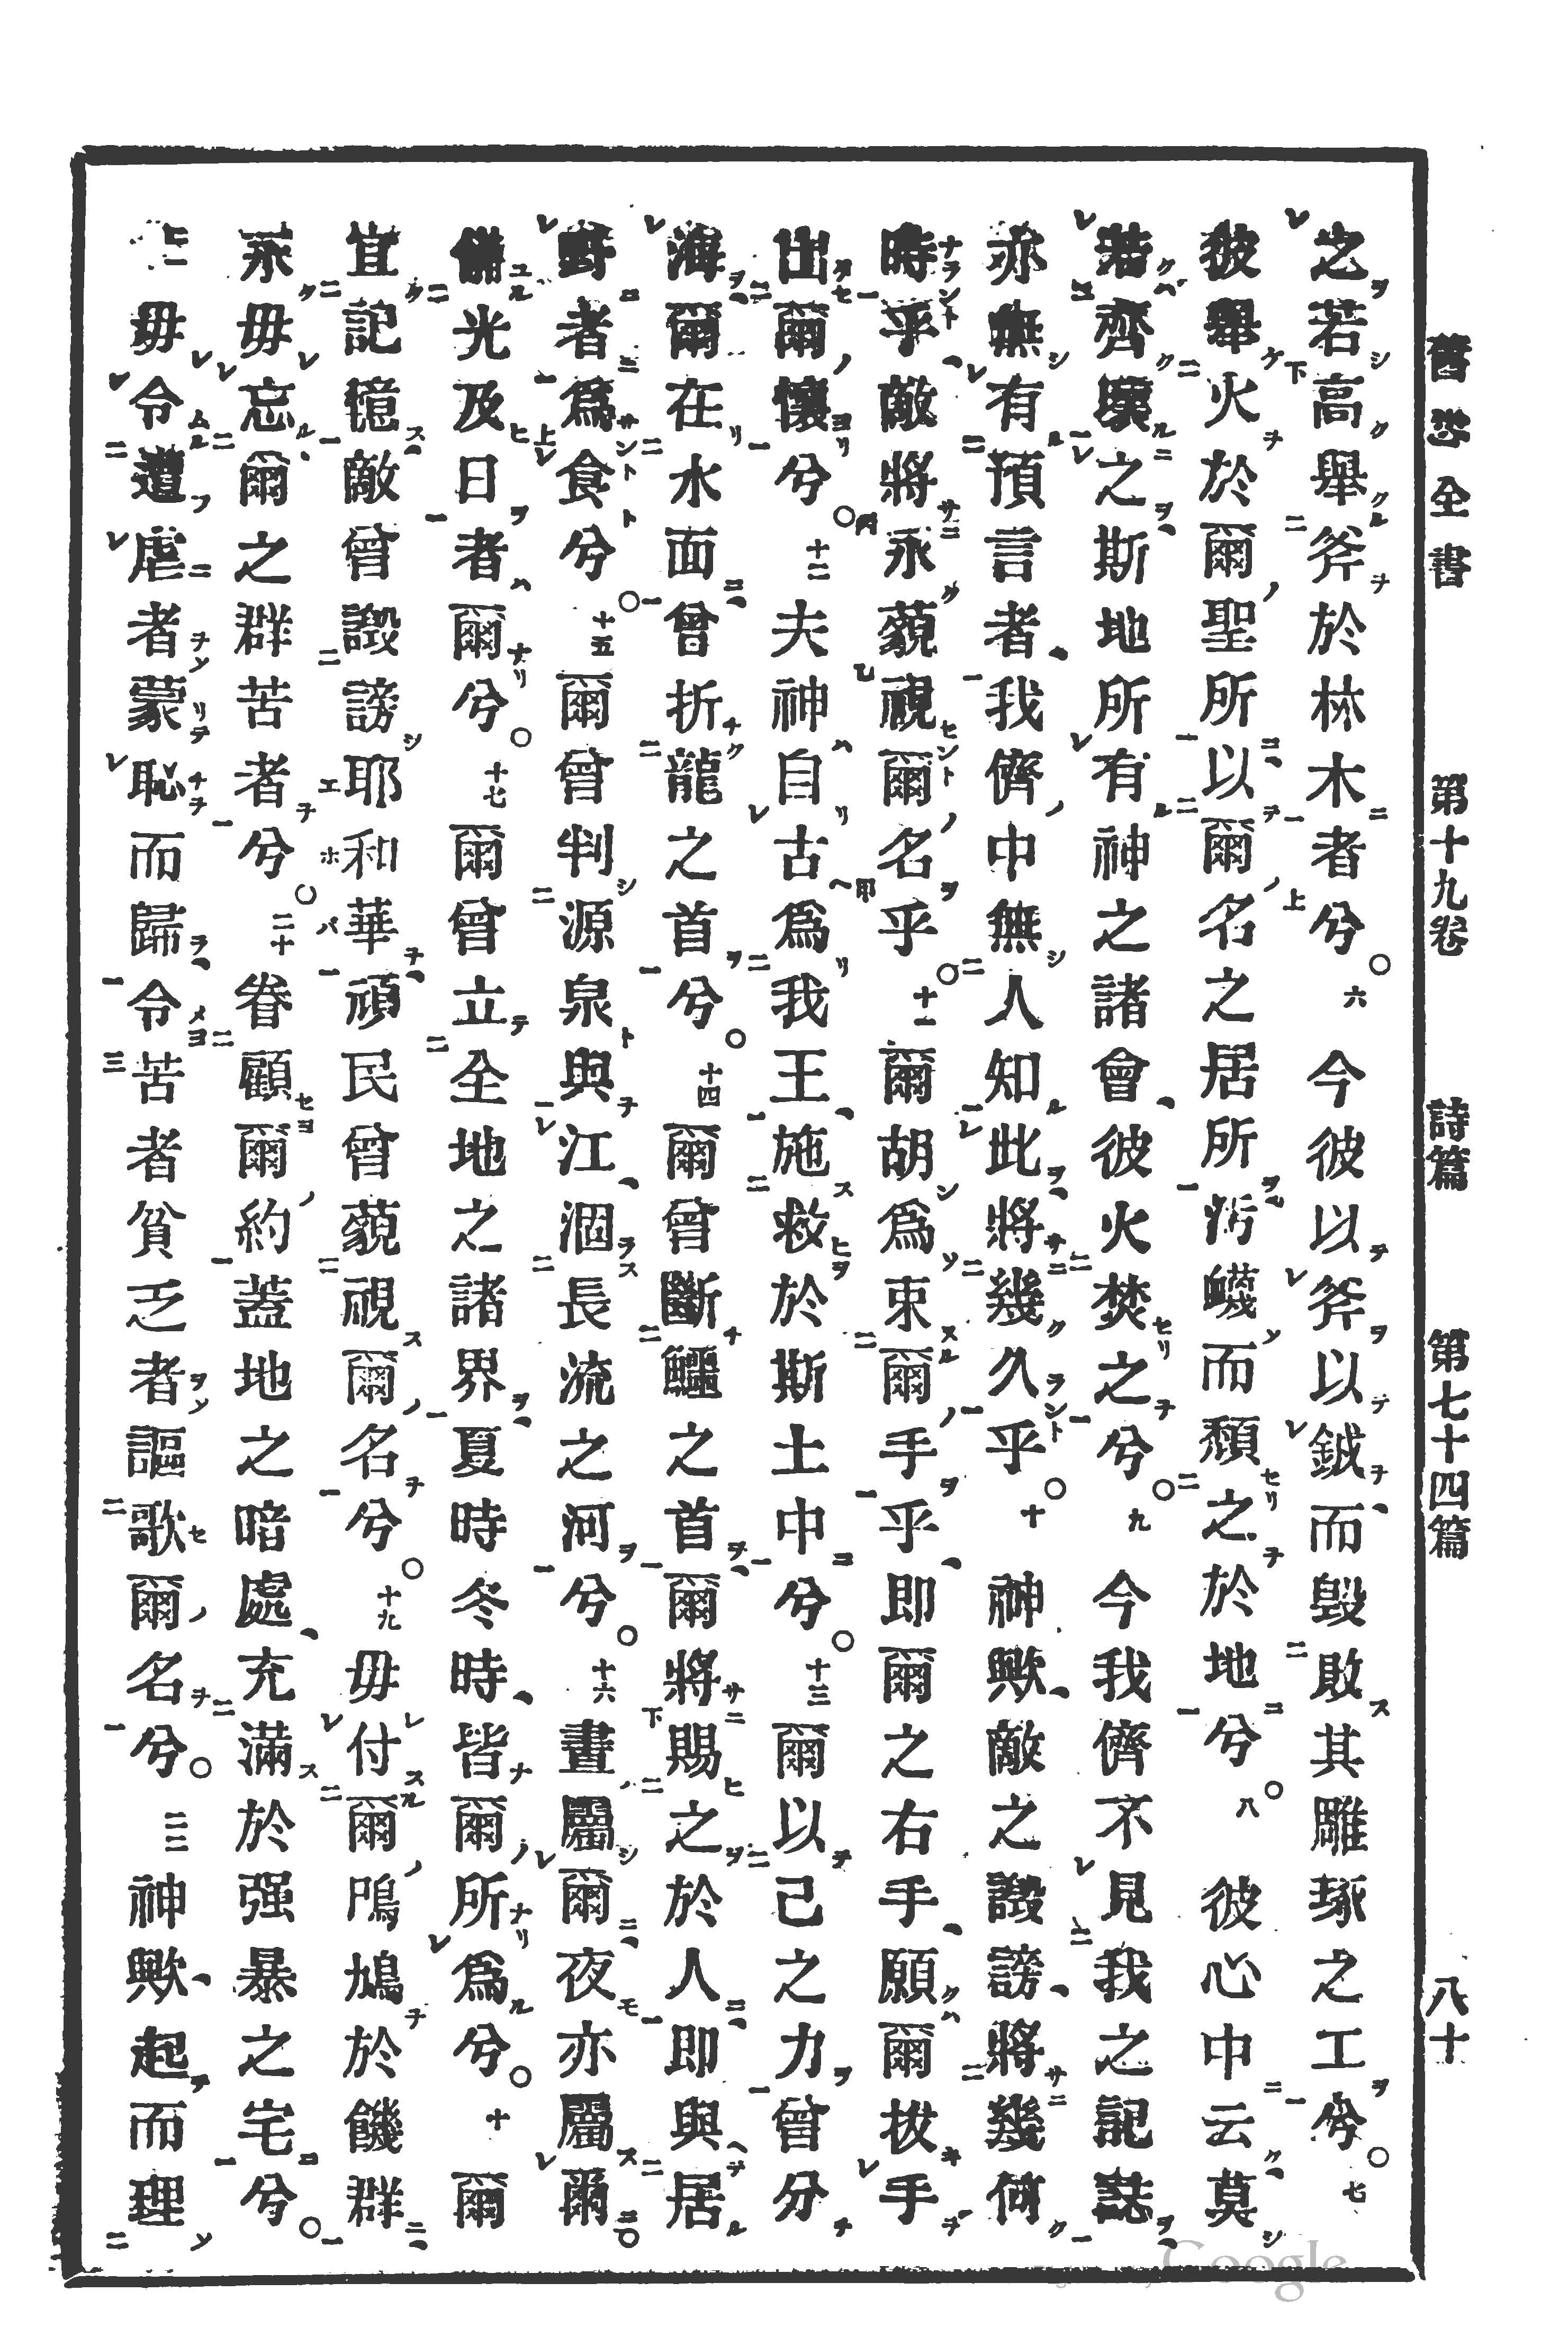 舊約全書 第十九卷 詩篇 第七十四篇 八十
之若高舉斧於林木者兮○六 今彼以斧以鉞、而毀敗其雕琢之工兮○七
彼舉火於爾聖所、以爾名之居所、汚衊而頹之於地兮○八 彼心中云、莫
若齊壞之、斯地所有神之諸會、彼火焚之兮○九 今我儕不見我之記誌、
亦無有預言者、我儕中無人知此、將幾久乎○十 神歟、敵之譭謗、將幾何
時乎、敵將永藐視爾名乎○十一 爾胡爲束爾手乎、即爾之右手、願爾拔手
出爾懷兮○十二 夫神自古爲我王、施救於斯土中兮○十三 爾以己之力曾分
海、爾在水面、曾折龍之首兮○十四 爾曾斷鱷之首、爾將賜之於人、即與居
野者爲食兮○十五 爾曾判源泉與江、涸長流之河兮○十六 晝屬爾、夜亦屬爾○
備光及日者爾兮○十七 爾曾立全地之諸界、夏時冬時、皆爾所爲兮○十 爾
宜記憶、敵曾譭謗耶和華、頑民曾藐視爾名兮○十九 毋付爾鳲鳩於饑群、
永毋忘爾之群苦者兮○二十 眷顧爾約、蓋地之暗處、充滿於强暴之宅兮○
二一 毋令遭虐者蒙恥而歸、令苦者貧乏者謳歌爾名兮○二二 神歟、起而理